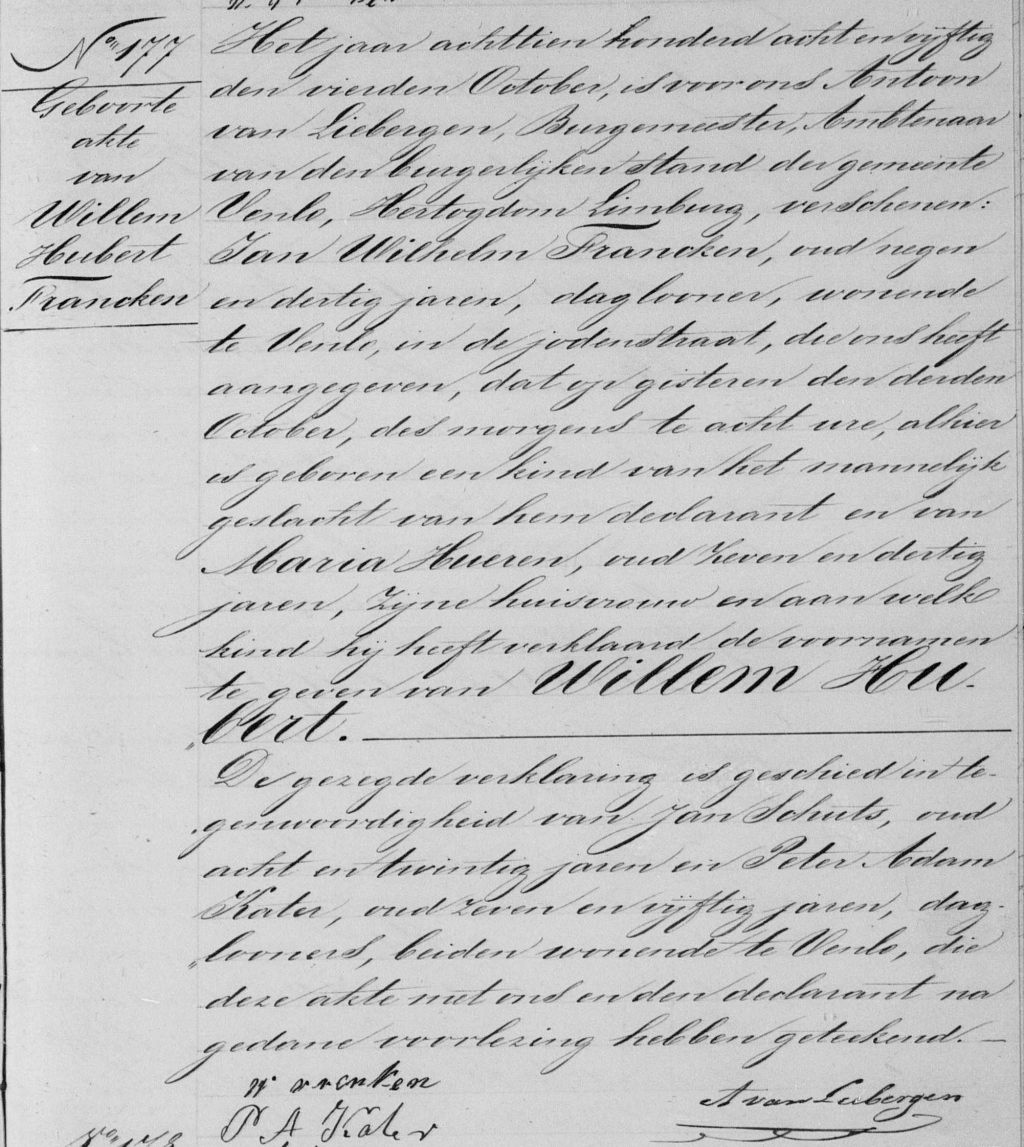 No 177
Geboorte
akte
van
Willem
Hubert
Francken
Het jaar achttien honderd acht en vijftig
den vierden October, is voor ons Antoon
van Liebergen, Burgemeester, Ambtenaar
van den burgerlijken stand der gemeente
Venlo, Hertogdom Limburg, verschenen:
Jan Wilhelm Francken, oud negen
en dertig jaren, daglooner, wonende
te Venlo, in de jodenstraat, die ons heeft
aangegeven, dat op gisteren den derden
October, des morgens te acht ure, alhier
is geboren een kind van het mannelijk
geslacht van hem declarant en van
Maria Hueren, oud zeven en dertig
jaren, zijne huisvrouw en aan welk
kind hij heeft verklaard de voornamen
te geven van Willem Hu-
"bert.
De gezegde verklaring is geschied in te-
"genwoordigheid van Jan Schuts, oud
acht en twintig jaren en Peter Adam
Kater, oud zeven en vijftig jaren, dag-
"looners, beiden wonende te Venlo, die
deze akte met ons en den declarant na
gedane voorlezing hebben geteekend.
W vrenken
A van Liebergen
P A Kater
No 178